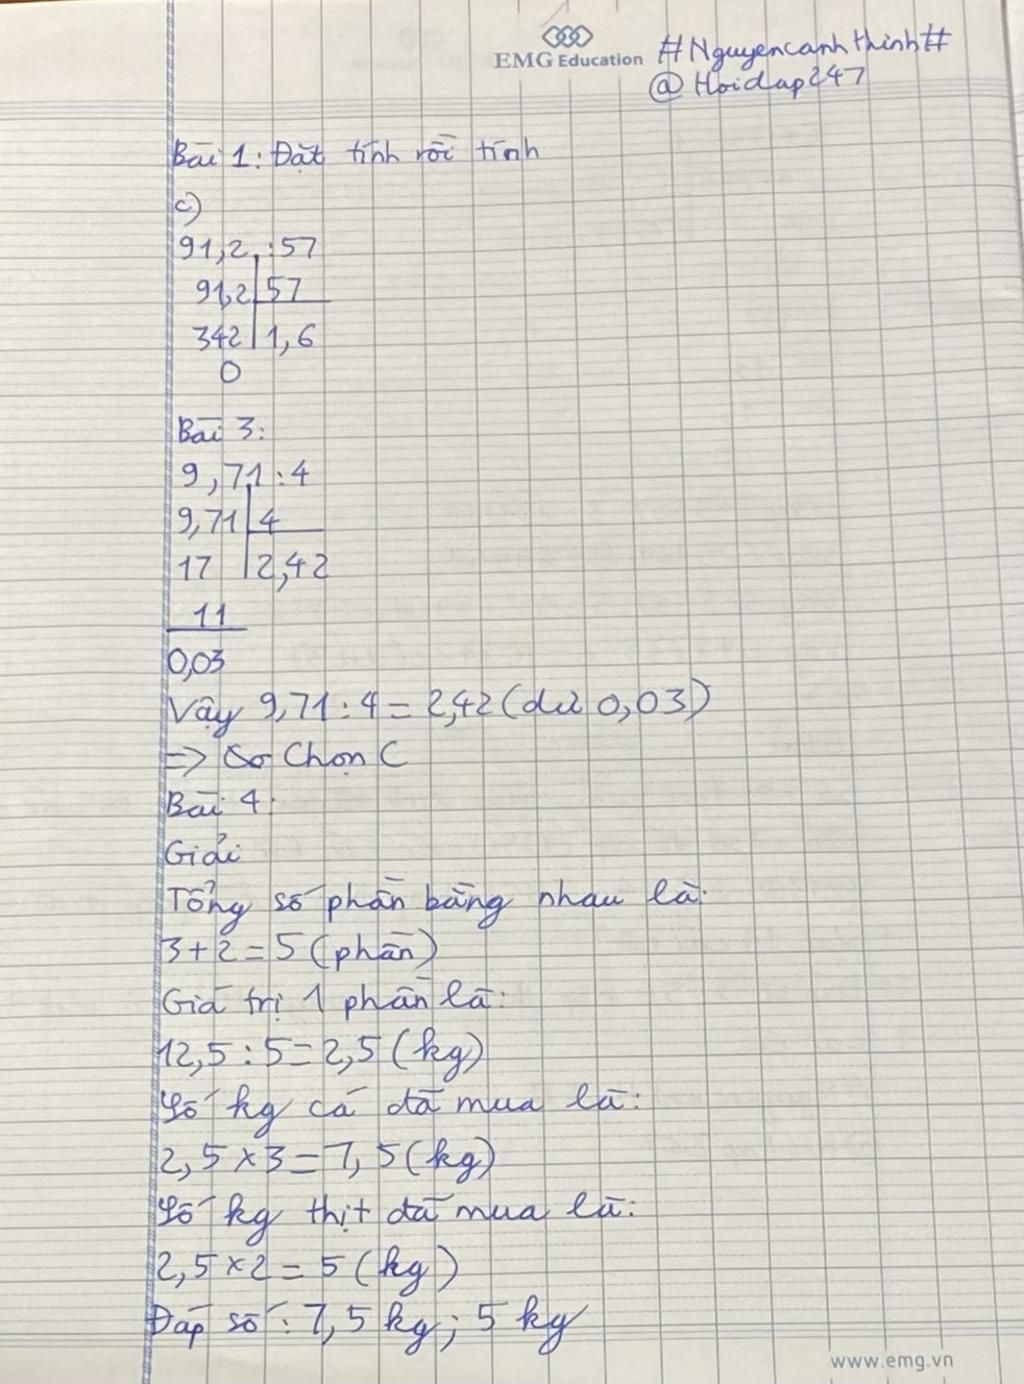 EMG Education
#Nguyencanhthinh#
@Hoidap247
Bài 1: Đặt tính rồi tính
c)
91,2 : 57
91,2 57
342 1,6
0
Bài 3:
9,71 : 4
9,71 4
17 2,42
11
0,03
Vậy 9,71 : 4 = 2,42 (dư 0,03)
=> Chọn C
Bài 4:
Giải
Tổng số phần bằng nhau là:
3 + 2 = 5 (phần)
Giá trị 1 phần là:
12,5 : 5 = 2,5 (kg)
Số kg cá đã mua là:
2,5 × 3 = 7,5 (kg)
Số kg thịt đã mua là:
2,5 × 2 = 5 (kg)
Đáp số : 7,5 kg ; 5 kg
www.emg.vn